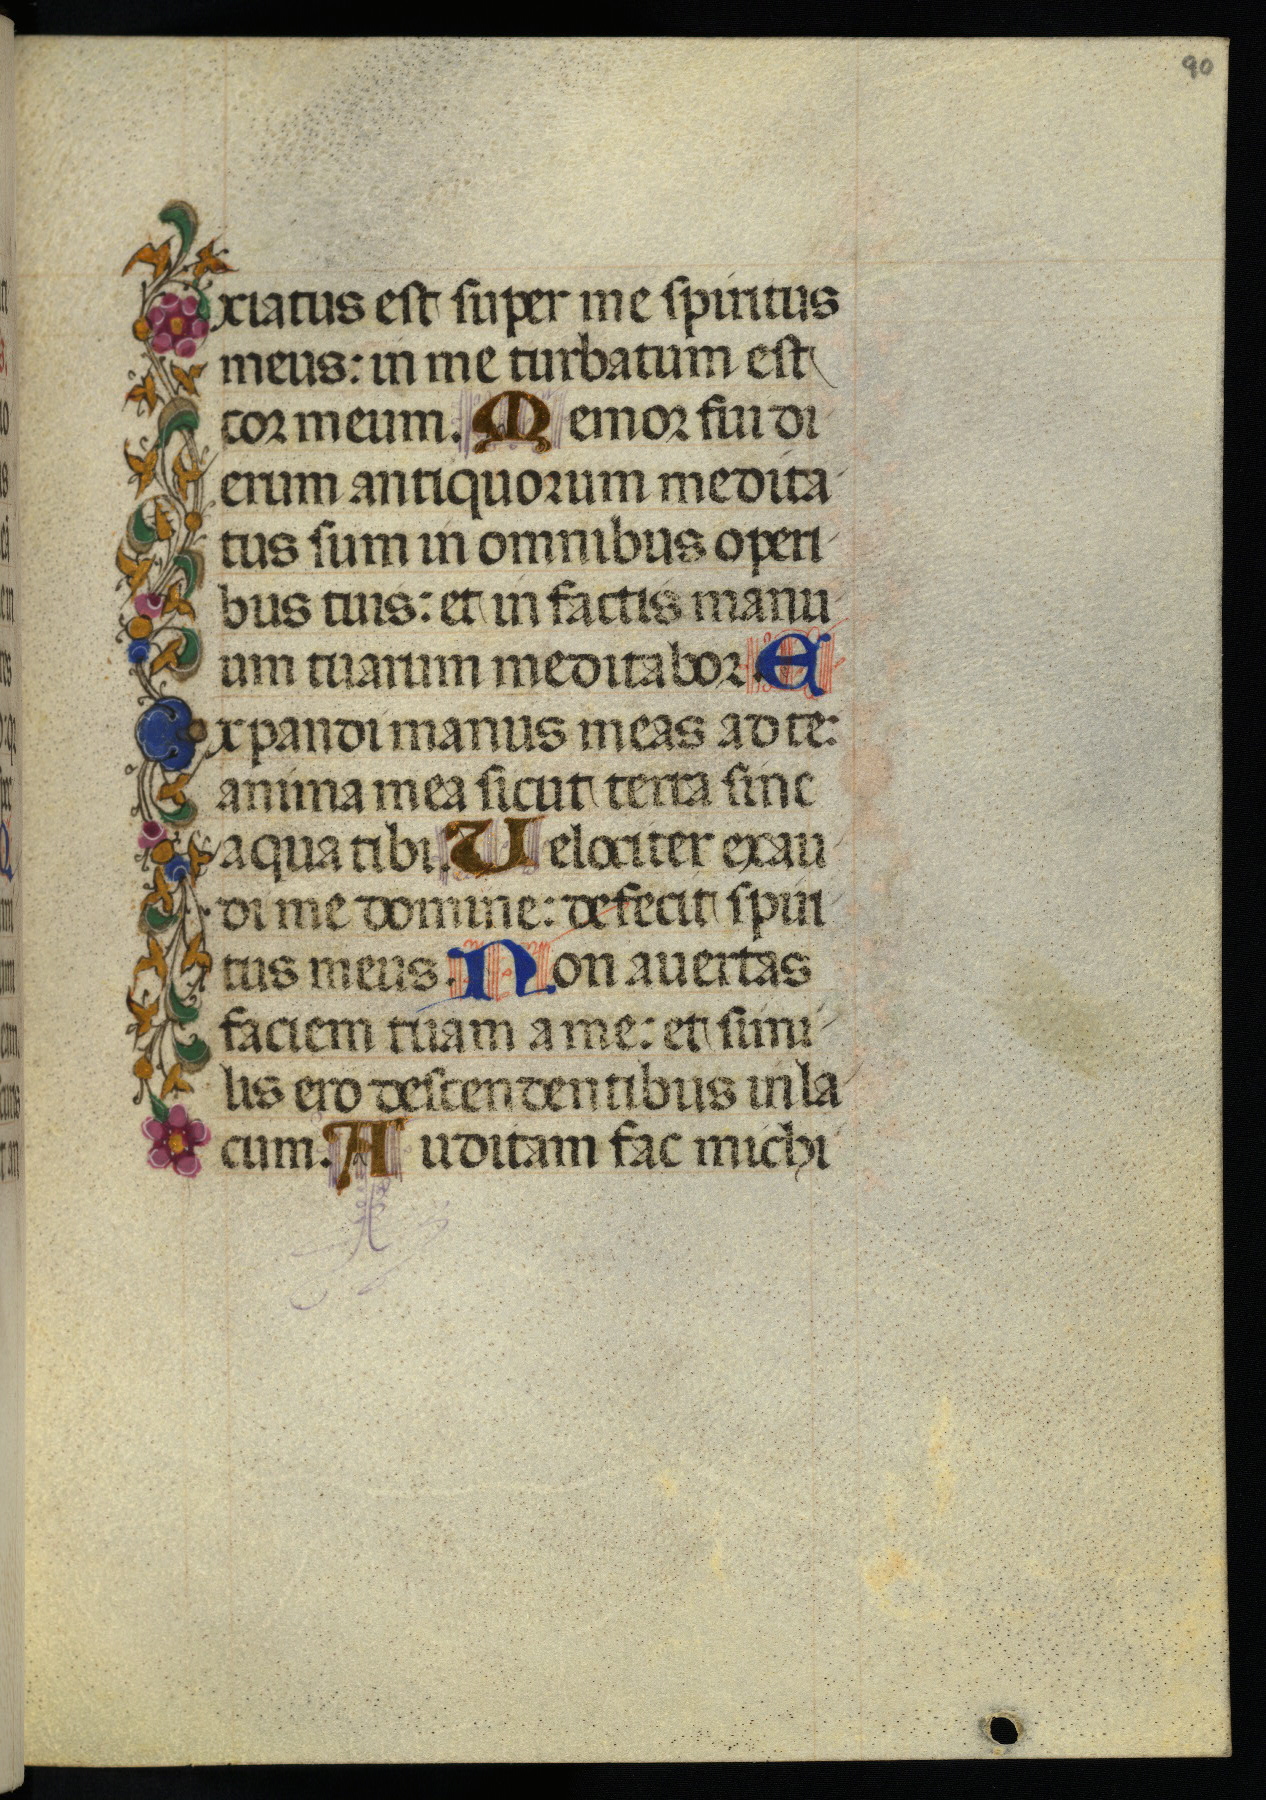 90
xiatus est super me spiritus
meus: in me turbatum est
cor meum. Memor fui di
erum antiquorum medita
tus sum in omnibus operi
bus tuis: et in factis manu
um tuarum meditabor. E
xpandi manus meas ad te:
anima mea sicut terra sine
aqua tibi. Velociter exau
di me domine: defecit spiri
tus meus. Non auertas
faciem tuam a me: et simi
lis ero descendentibus in la
cum. Auditam fac michi